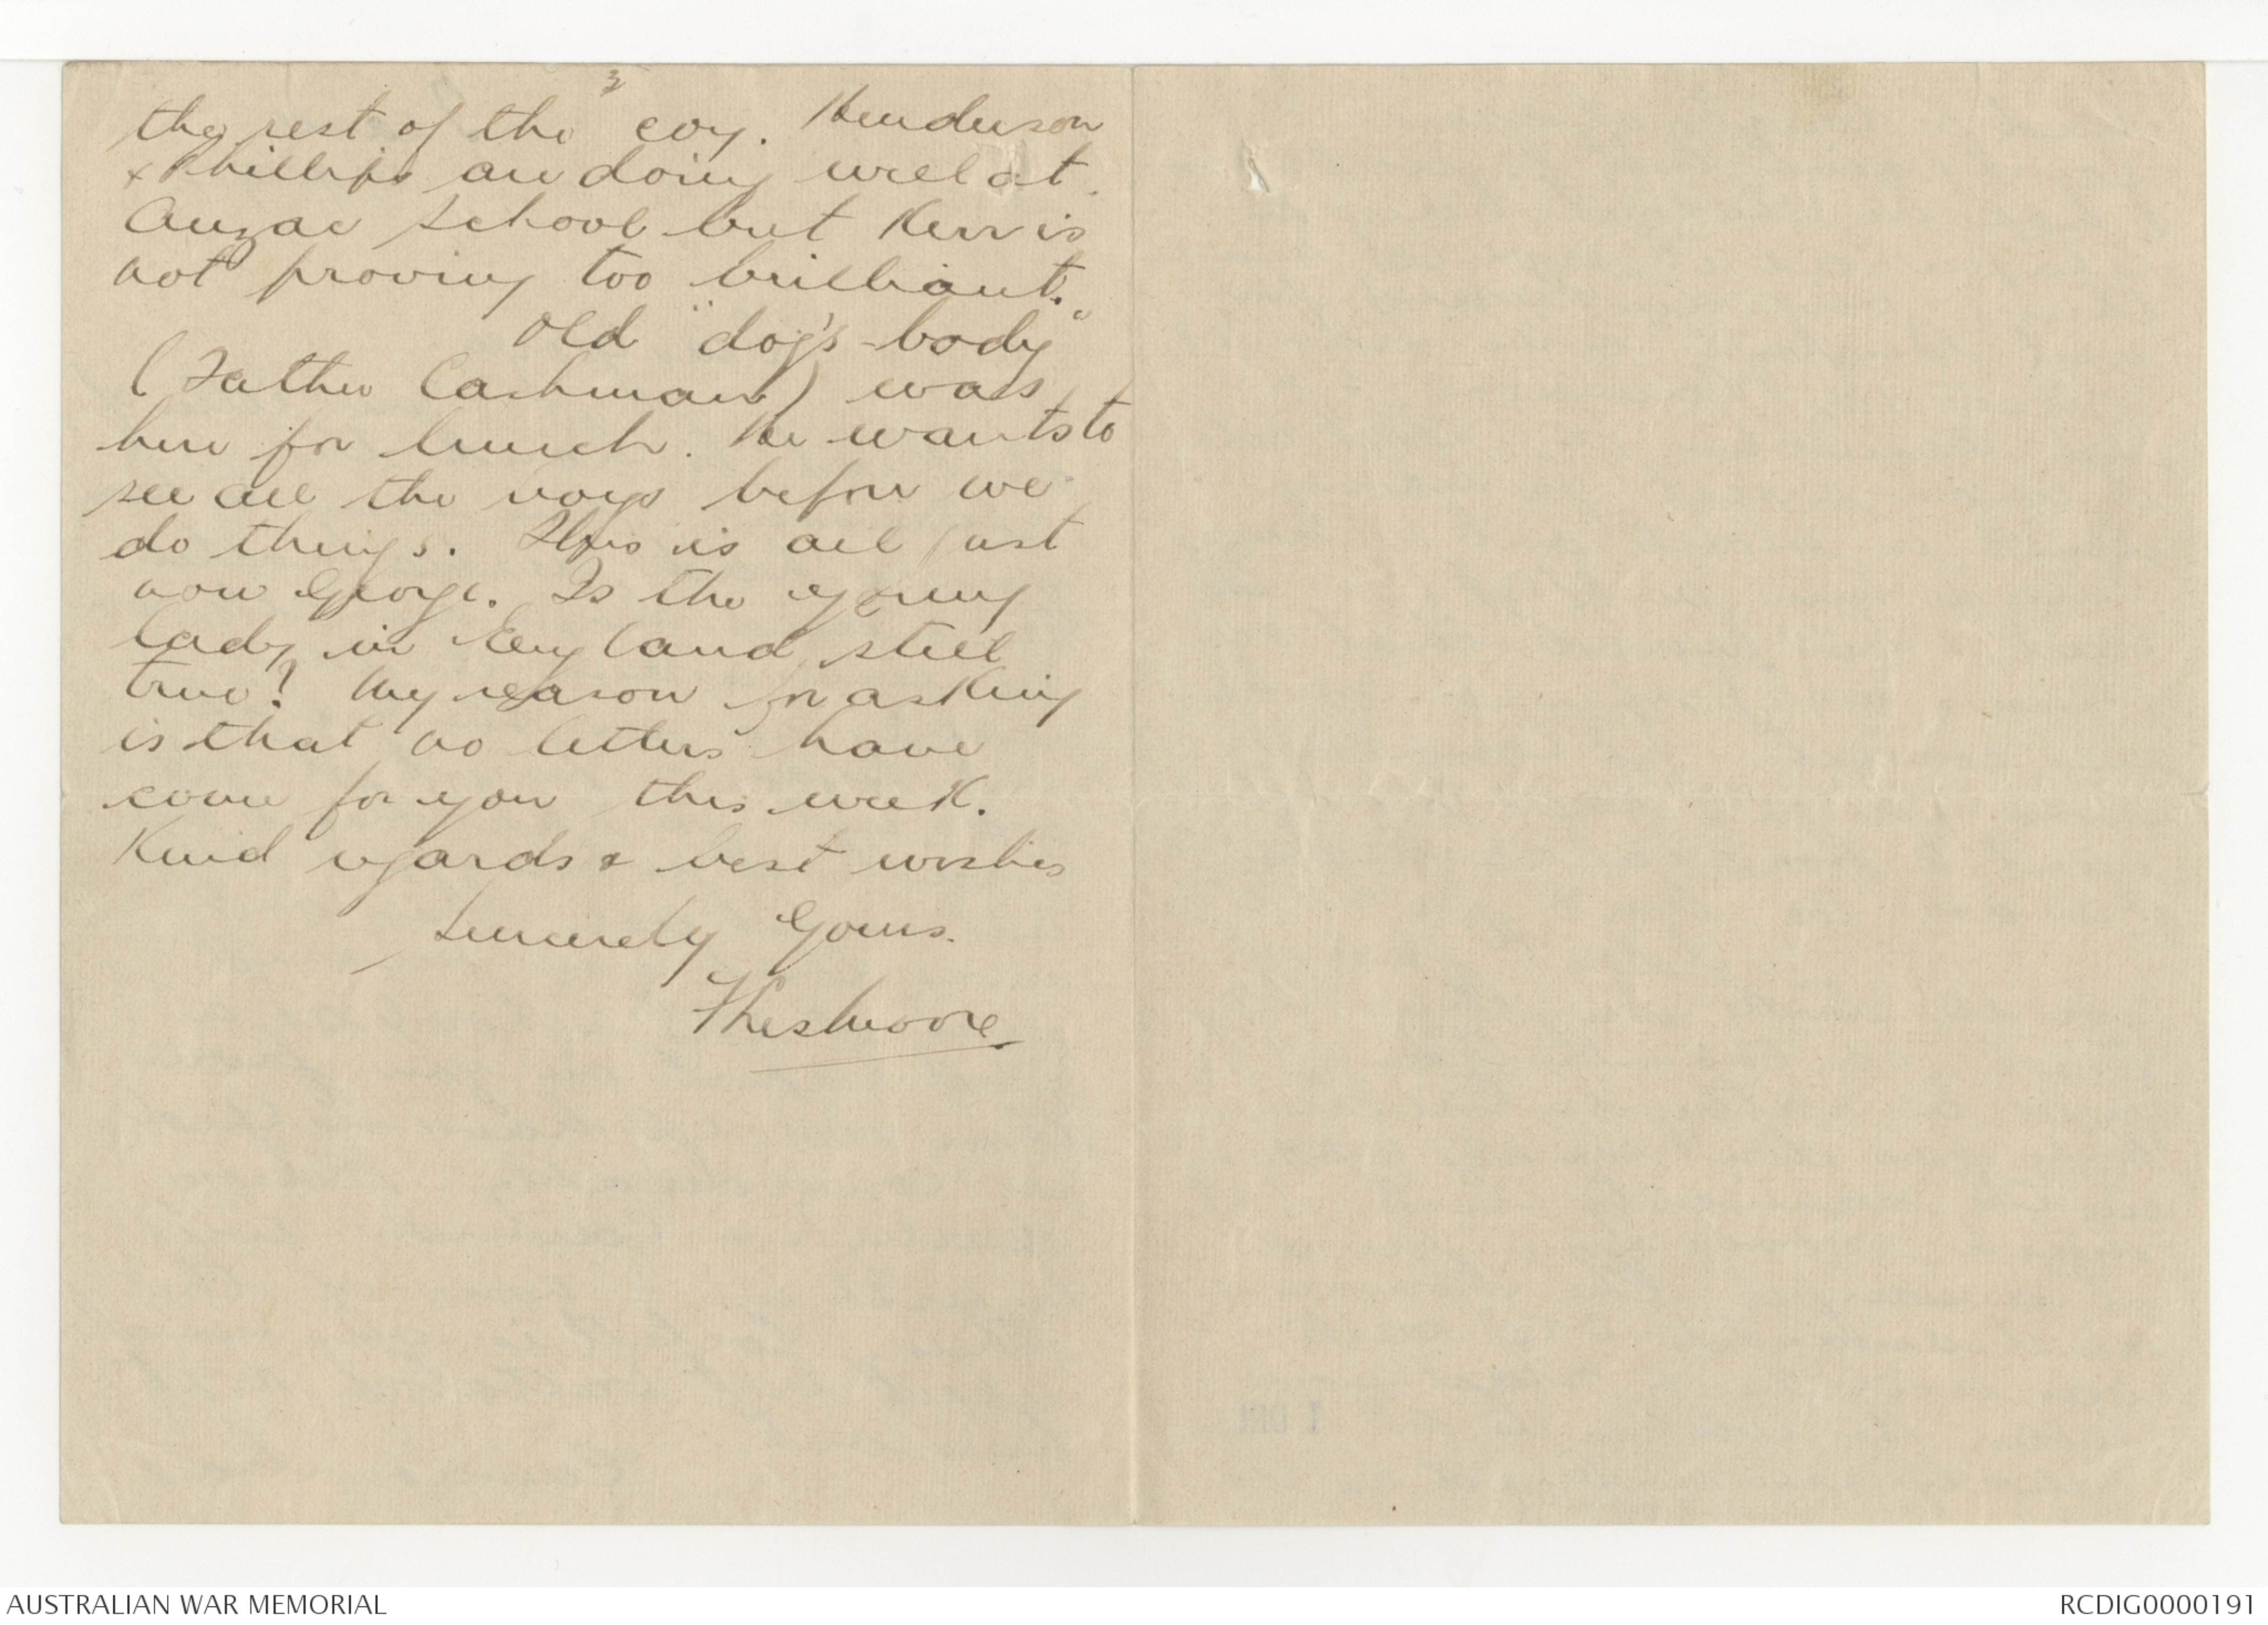 3
the rest of the coy. Henderson
& Phillips are doing well at
Anzac School but Kerr is
not proving too brilliant.
Old "dog's-body"
(Father Cashman) was
here for lunch. He wants to
see all the boys before we
do things. This is all just
now George. Is the young
lady in England still
true? My reason for asking
is that no letters have
come for you this week.
Kind regards & best wishes
Sincerely Yours.
AUSTRALIAN WAR MEMORIAL
RCDIG0000191